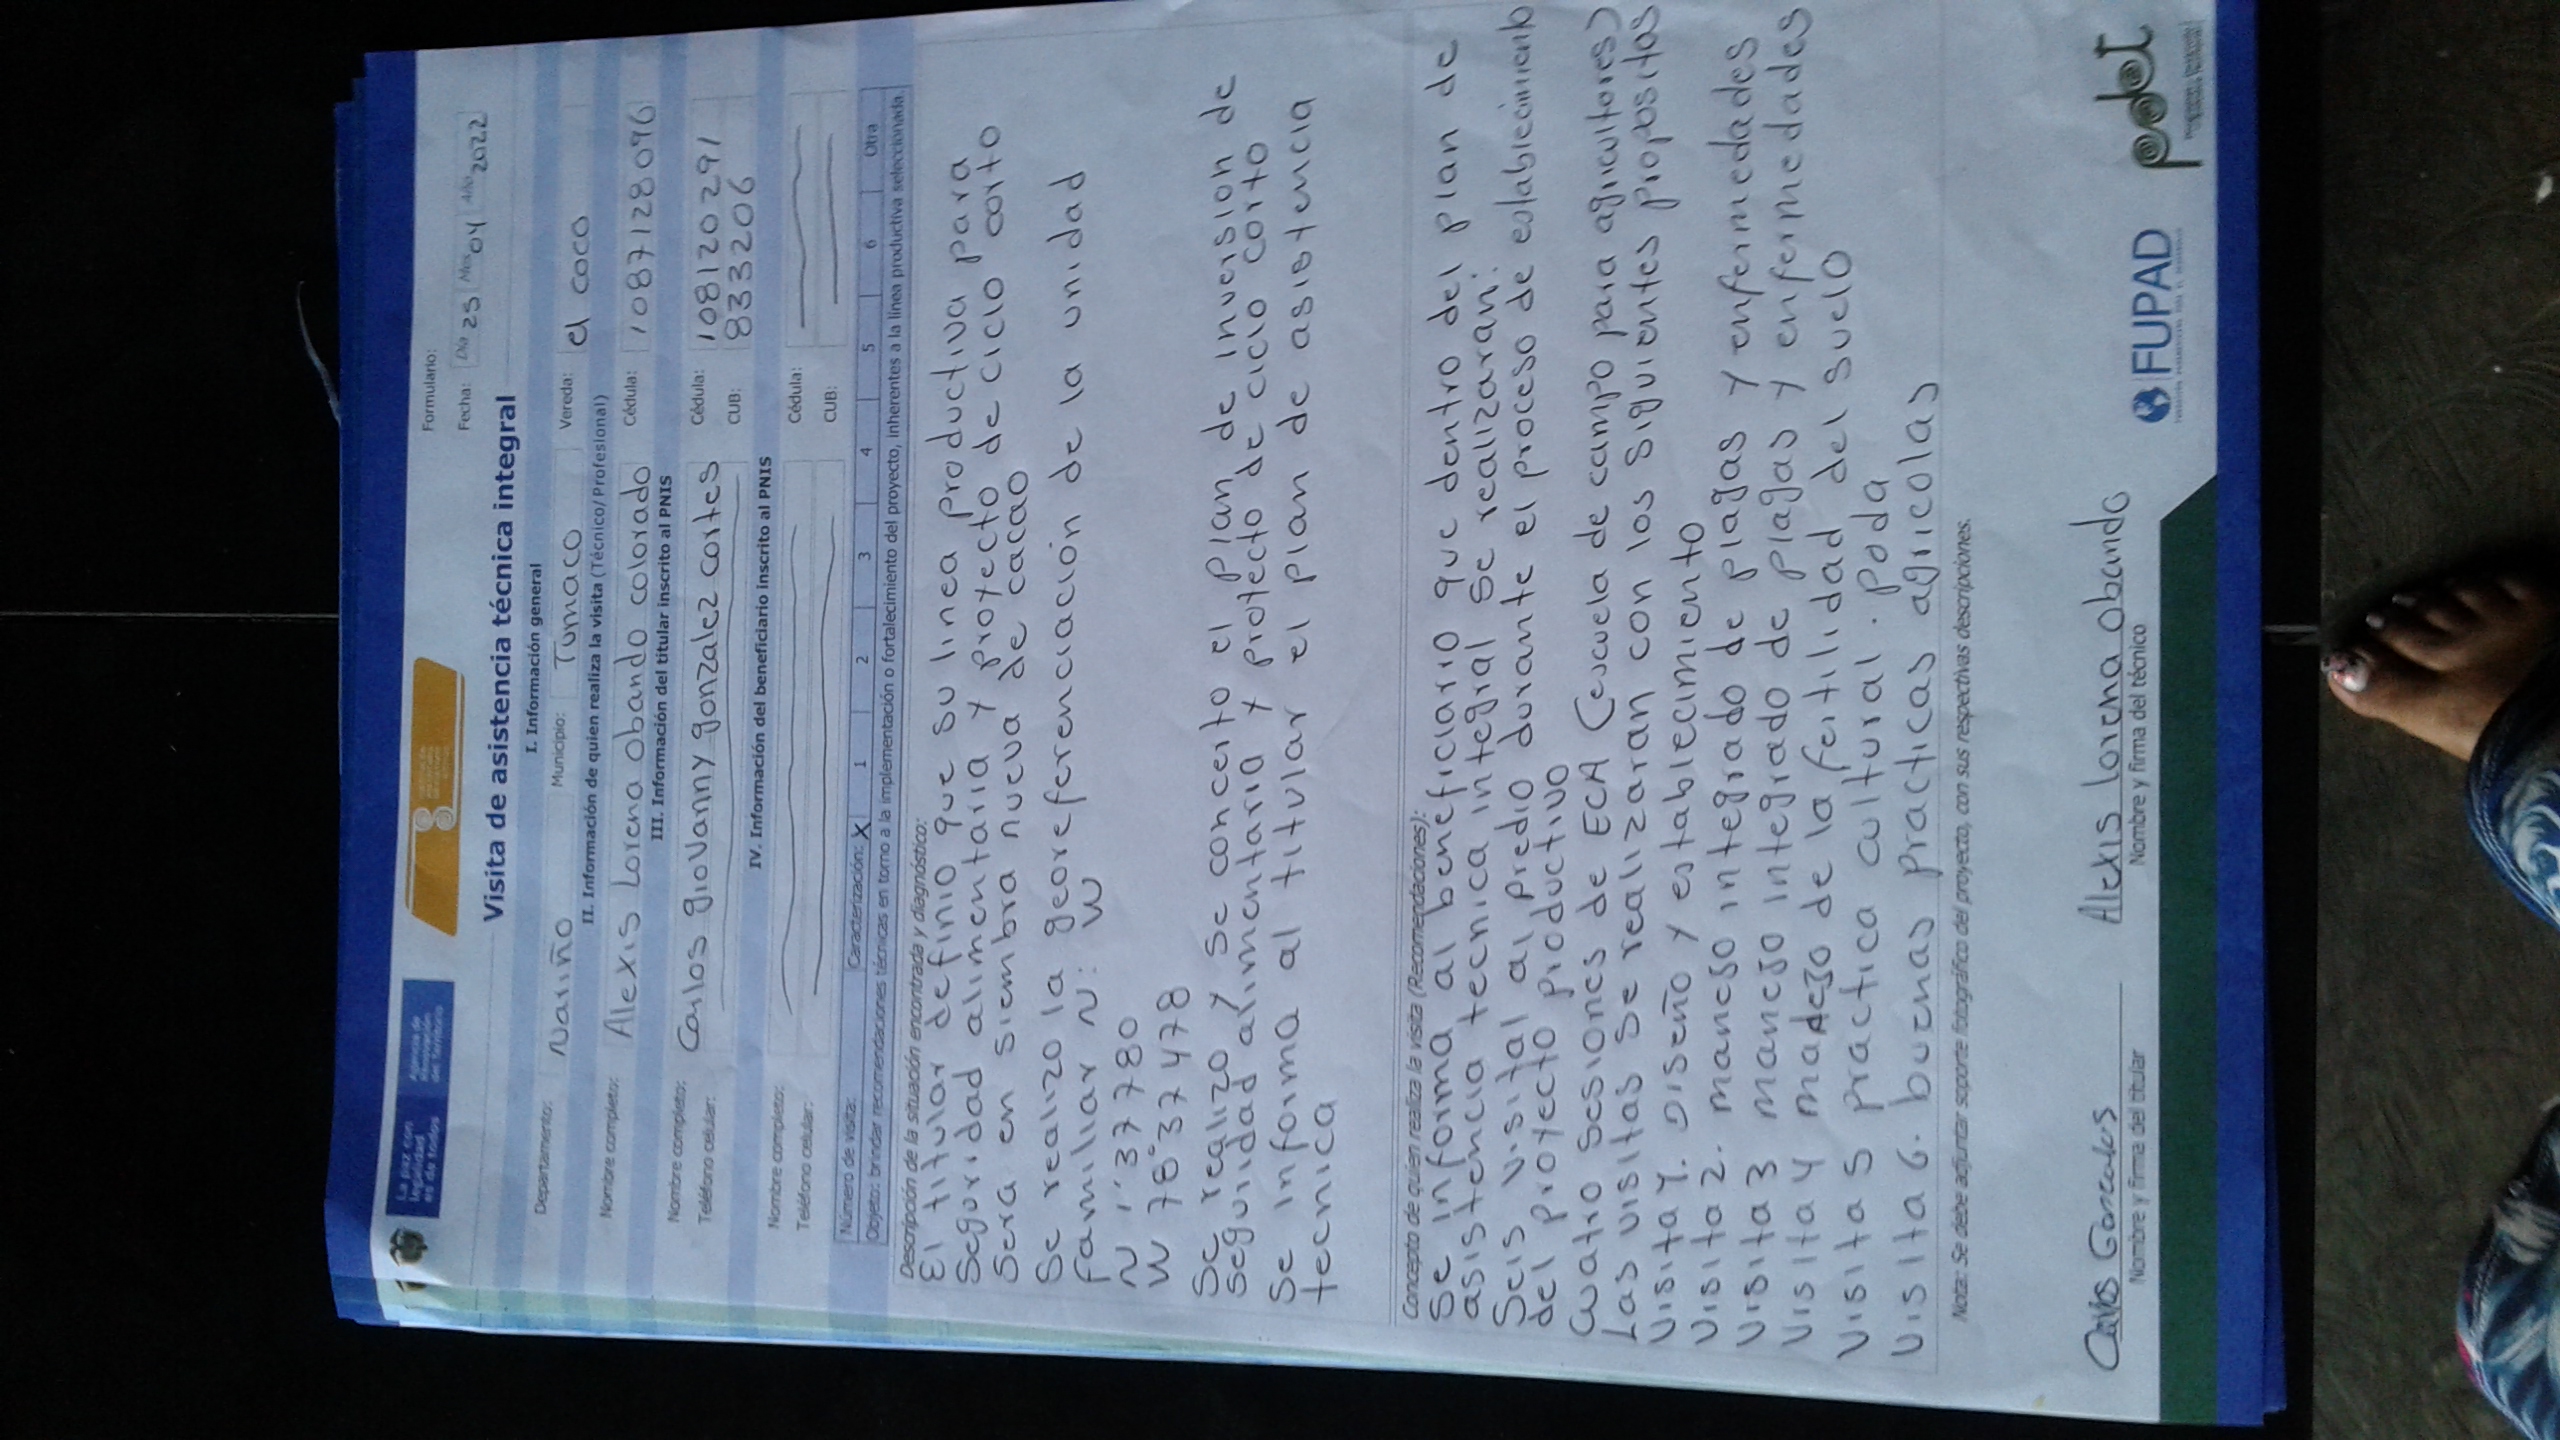 La paz con
legalidad
es de todos
Agencia de
Renovación
del Territorio
Formulario:
Fecha: Día 25 Mes 04 Año 2022
Visita de asistencia técnica integral
I. Información general
Departamento: Nariño Municipio: Tumaco Vereda: el coco
II. Información de quien realiza la visita (Técnico/Profesional)
Nombre completo: Alexis Lorena Obando colorado Cédula: 1087128096
III. Información del titular inscrito al PNIS
Nombre completo: Carlos giovanny gonzalez cortes Cédula: 108120291
Teléfono celular: CUB: 833206
IV. Información del beneficiario inscrito al PNIS
Nombre completo: Cédula:
Teléfono celular: CUB:
Número de visita: Caracterización: X 1 2 3 4 5 6 Otra
Objeto: brindar recomendaciones técnicas en torno a la implementación o fortalecimiento del proyecto, inherentes a la línea productiva seleccionada.
Descripción de la situación encontrada y diagnóstico:
El titular definio que su linea productiva para
Seguridad alimentaria y proyecto de ciclo corto
Sera en siembra nueva de cacao
Se realizo la georeferenciación de la unidad
familiar N: W
N 1°37'780
W 78°37'478
Se realizo y se concerto el plan de inversion de
seguridad alimentaria y protecto de ciclo corto
Se informa al titular el plan de asistencia
tecnica
Concepto de quien realiza la visita (Recomendaciones):
Se informa al beneficiario que dentro del plan de
asistencia tecnica integral se realizaran:
Seis visital al predio durante el proceso de establecimiento
del proyecto productivo
Cuatro sesiones de ECA (escuela de campo para agricultores)
Las visitas se realizaran con los siguientes propositos
Visita 1. Diseño y establecimiento
Visita 2. manejo integrado de plagas y enfermedades
Visita 3 manejo integrado de plagas y enfermedades
Visita 4 manejo de la fertilidad del suelo
Visita 5 practica cultural. poda
Visita 6. buenas practicas agricolas
Nota: Se debe adjuntar soporte fotográfico del proyecto, con sus respectivas descripciones.
Carlos Gonzales Alexis lorena obando
Nombre y firma del titular Nombre y firma del técnico
FUPAD
pdet